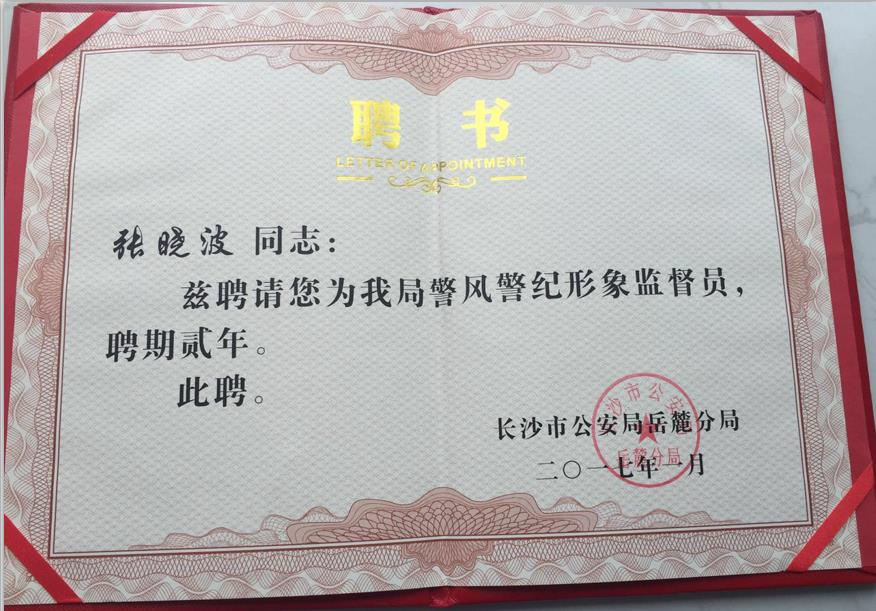 聘书
LETTER OF APPOINTMENT
张晓波 同志：
兹聘请您为我局警风警纪形象监督员，
聘期贰年。
此聘。
长沙市公安局岳麓分局
二〇一七年一月
长沙市公安局
岳麓分局